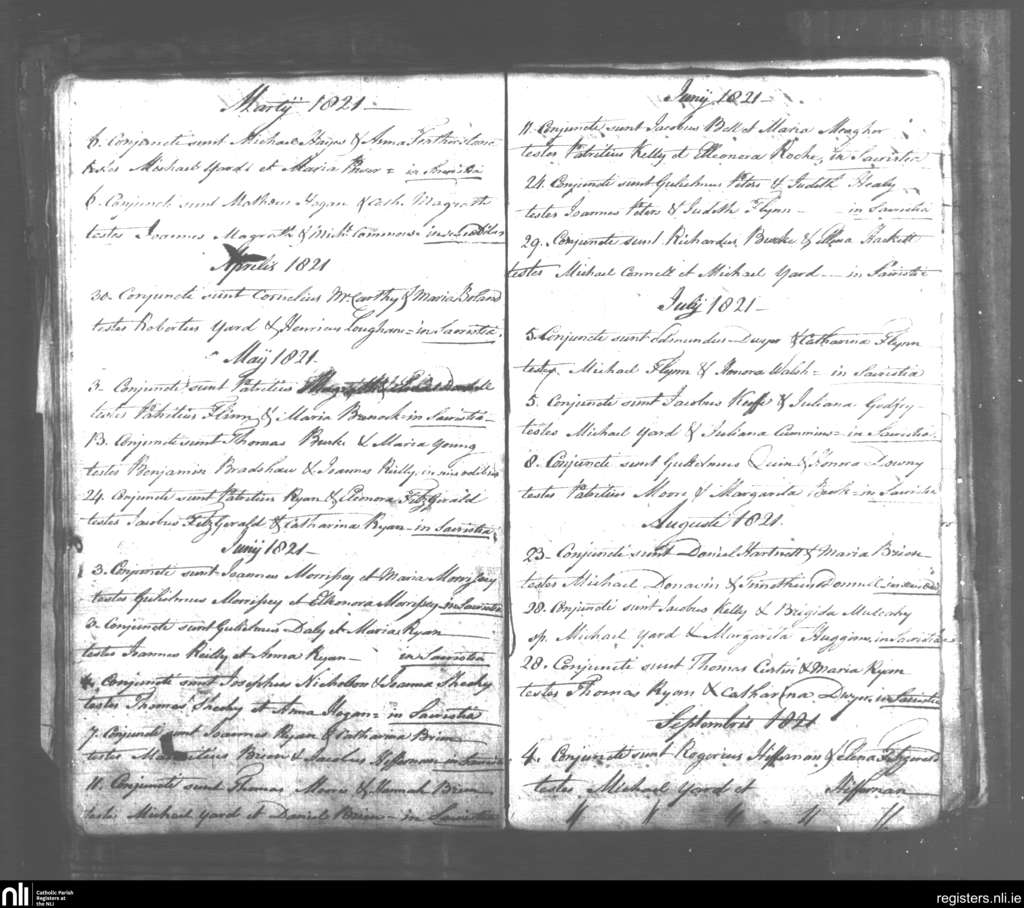 Martij 1821
6. Conjuncti sunt Michael Hayes & Anna
testes Michael Yard et Maria in Sacristia
6. Conjuncti sunt Matheus Hogan & Cath. Magrath
testes Joannes Magrath & Michl. Commons in
Aprilis 1821
30. Conjuncti sunt Cornelius McCarthy & Maria Boland
testes Robertus Yard & Henricus Loughan in Sacristia
Maij 1821
3. Conjuncti sunt Patritius
testes Patritius Flinn & Maria in Sacristia
13. Conjuncti sunt Thomas Burke & Maria Young
testes Benjamin Bradshaw & Joannes Reilly in
24. Conjuncti sunt Patritius Ryan & Elenora FitzGerald
testes Jacobus FitzGerald & Catharina Ryan in Sacristia
Junij 1821
3. Conjuncti sunt Joannes Morrisey et Maria Morrisey
testes Gulielmus Morrisey et Elleonora Morrisey in Sacristia
Conjuncti sunt Gulielmus Daly et Maria Ryan
testes Joannes Reilly et Anna Ryan in Sacristia
Conjuncti sunt Josephus Nicholson & Joanna Sheehy
testes Thomas et Anna Hogan in Sacristia
7. Conjuncti sunt Joannes Ryan & Catharina Brien
testes Brien & Jacobus Heffernan in Sacristia
11. Conjuncti sunt Thomas & Hannah Brien
testes Michael Yard et Daniel Brien in Sacristia
Junij 1821
11. Conjuncti sunt Jacobus Bell et Maria Meagher
testes Patritius Kelly et Elleonora Roche, in Sacristia
24. Conjuncti sunt Gulielmus Peters & Judith Healy
testes Joannes Peters & Judith Flynn in Sacristia
29. Conjuncti sunt Richardus Burke & Ellena Hackett
testes Michael Connell et Michael Yard in Sacristia
July 1821
5. Conjuncti sunt Edmundus Dwyer & Catharina Flynn
testes Michael Flynn & Honora Walsh in Sacristia
5. Conjuncti sunt Jacobus Keeffe & Juliana Godfry
testes Michael Yard & Juliana Cummins in Sacristia
8. Conjuncti sunt Gulielmus Quin & Honora Downy
testes Patritius Moore & Margarita in Sacristia
Augusti 1821
23. Conjuncti sunt Daniel Hartnett & Maria Brien
testes Michael Donavin & Timotheus
28. Conjuncti sunt Jacobus Kelly & Brigida Mulcahy
sp. Michael Yard & Margarita Huggins in Sacristia
28. Conjuncti sunt Thomas Curtin & Maria Ryan
testes Thomas Ryan & Catharina Dwyer in Sacristia
Septembris 1821
4. Conjuncti sunt Rogerius Heffernan & Elena Fitzgerald
testes Michael Yard et Heffernan
nli
Catholic Parish
Registers at
the NLI
registers.nli.ie